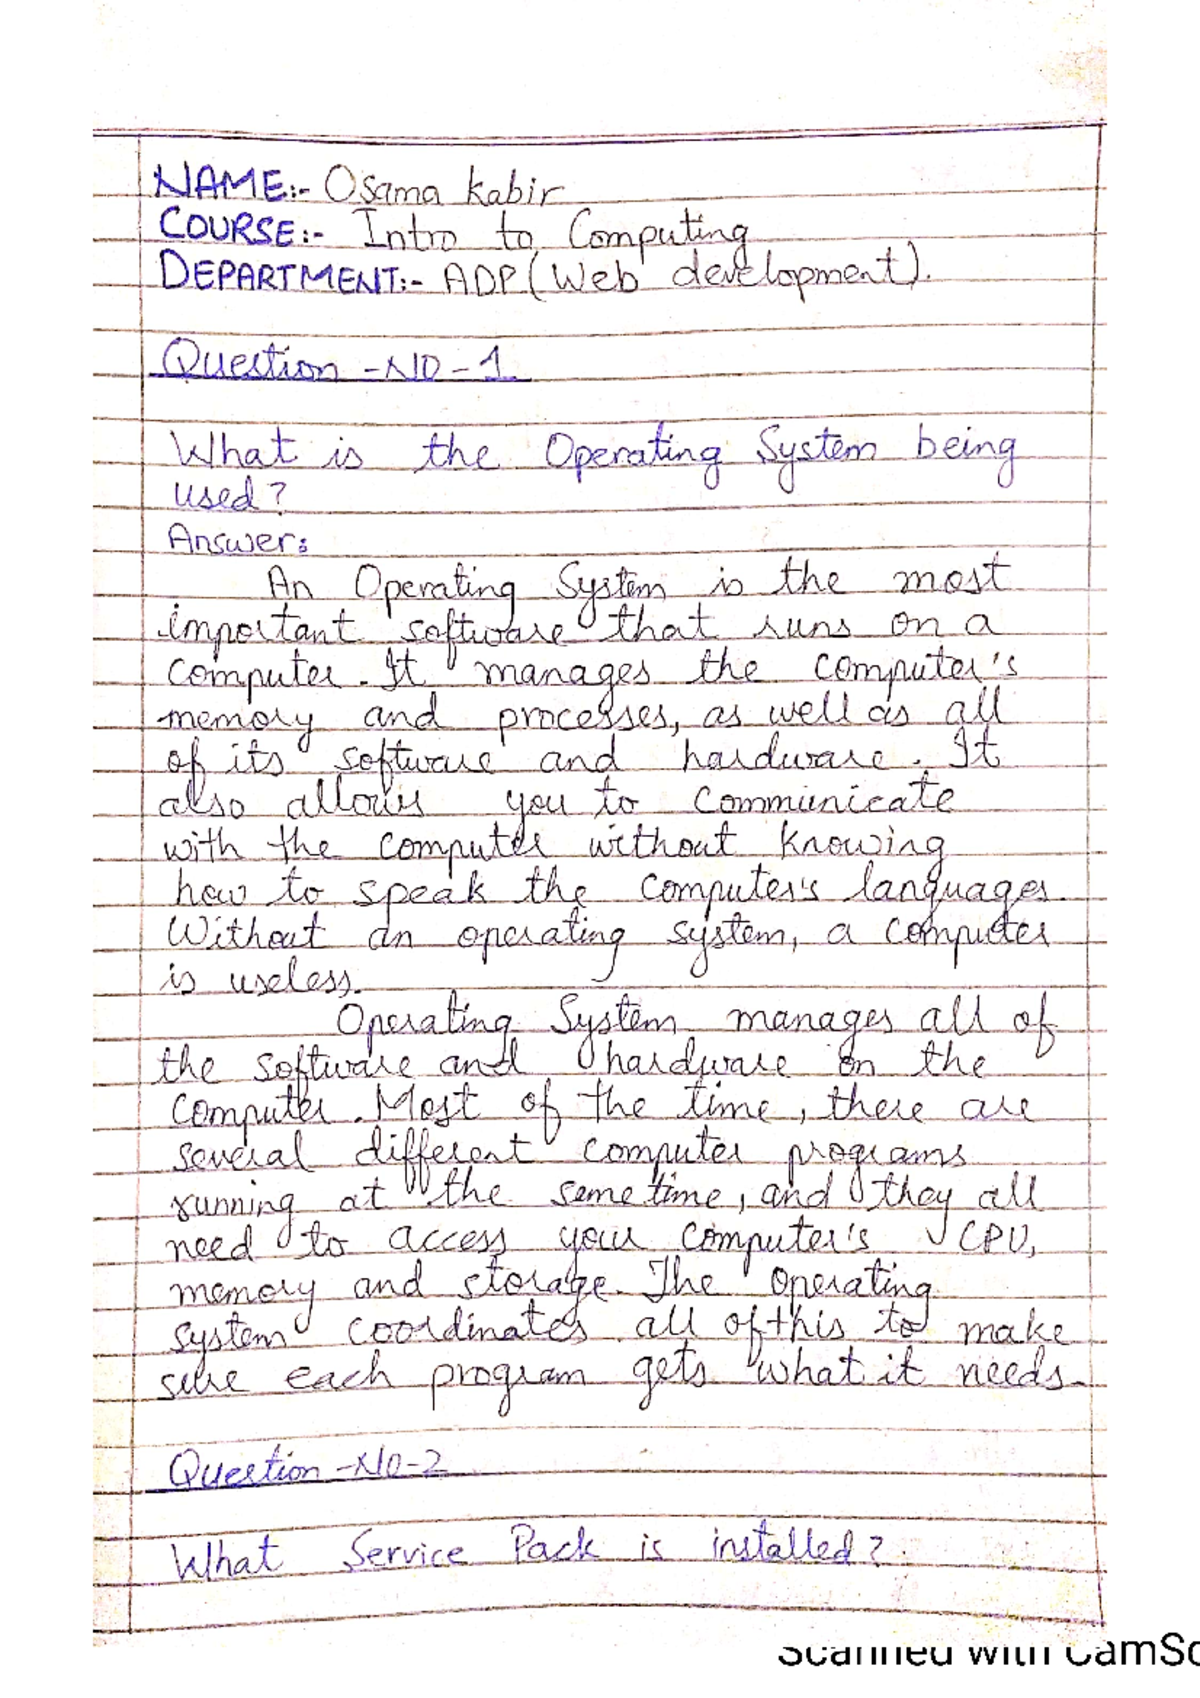 NAME:- Osama kabir
COURSE:- Intro to Computing
DEPARTMENT:- ADP (Web development).
Question -NO-1
What is the Operating System being
used?
Answer:
An Operating System is the most
important software that runs on a
computer. It manages the computer's
memory and processes, as well as all
of its software and hardware. It
also allows you to communicate
with the computer without knowing
how to speak the computer's languages.
Without an operating system, a computer
is useless.
Operating System manages all of
the software and hardware on the
computer. Most of the time, there are
several different computer programs
running at the same time, and they all
need to access your computer's CPU,
memory and storage. The operating
system coordinates all of this to make
sure each program gets what it needs.
Question -NO-2
What Service Pack is installed?
Scanned with CamSc